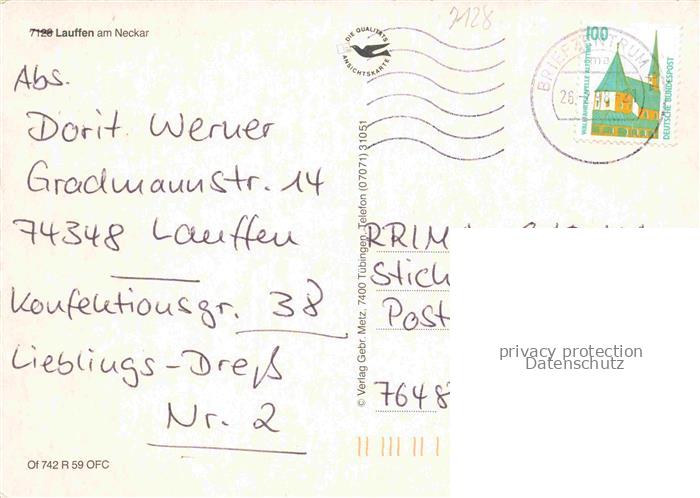 7128 Lauffen am Neckar
Abs.
Dorit Werner
Gradmannstr. 14
74348 Lauffen
Konfektionsgr. 38
Lieblings-Dreß
Nr. 2
Of 742 R 59 OFC
7128
DIE QUALITÄTS
ANSICHTSKARTE
© Verlag Gebr. Metz, 7400 Tübingen, Telefon (07071) 31051
BRIEFZENTRUM
100
WALLFAHRTSKAPELLE ALTÖTTING
DEUTSCHE BUNDESPOST
RRIM
Stich
Post
7648
privacy protection
Datenschutz